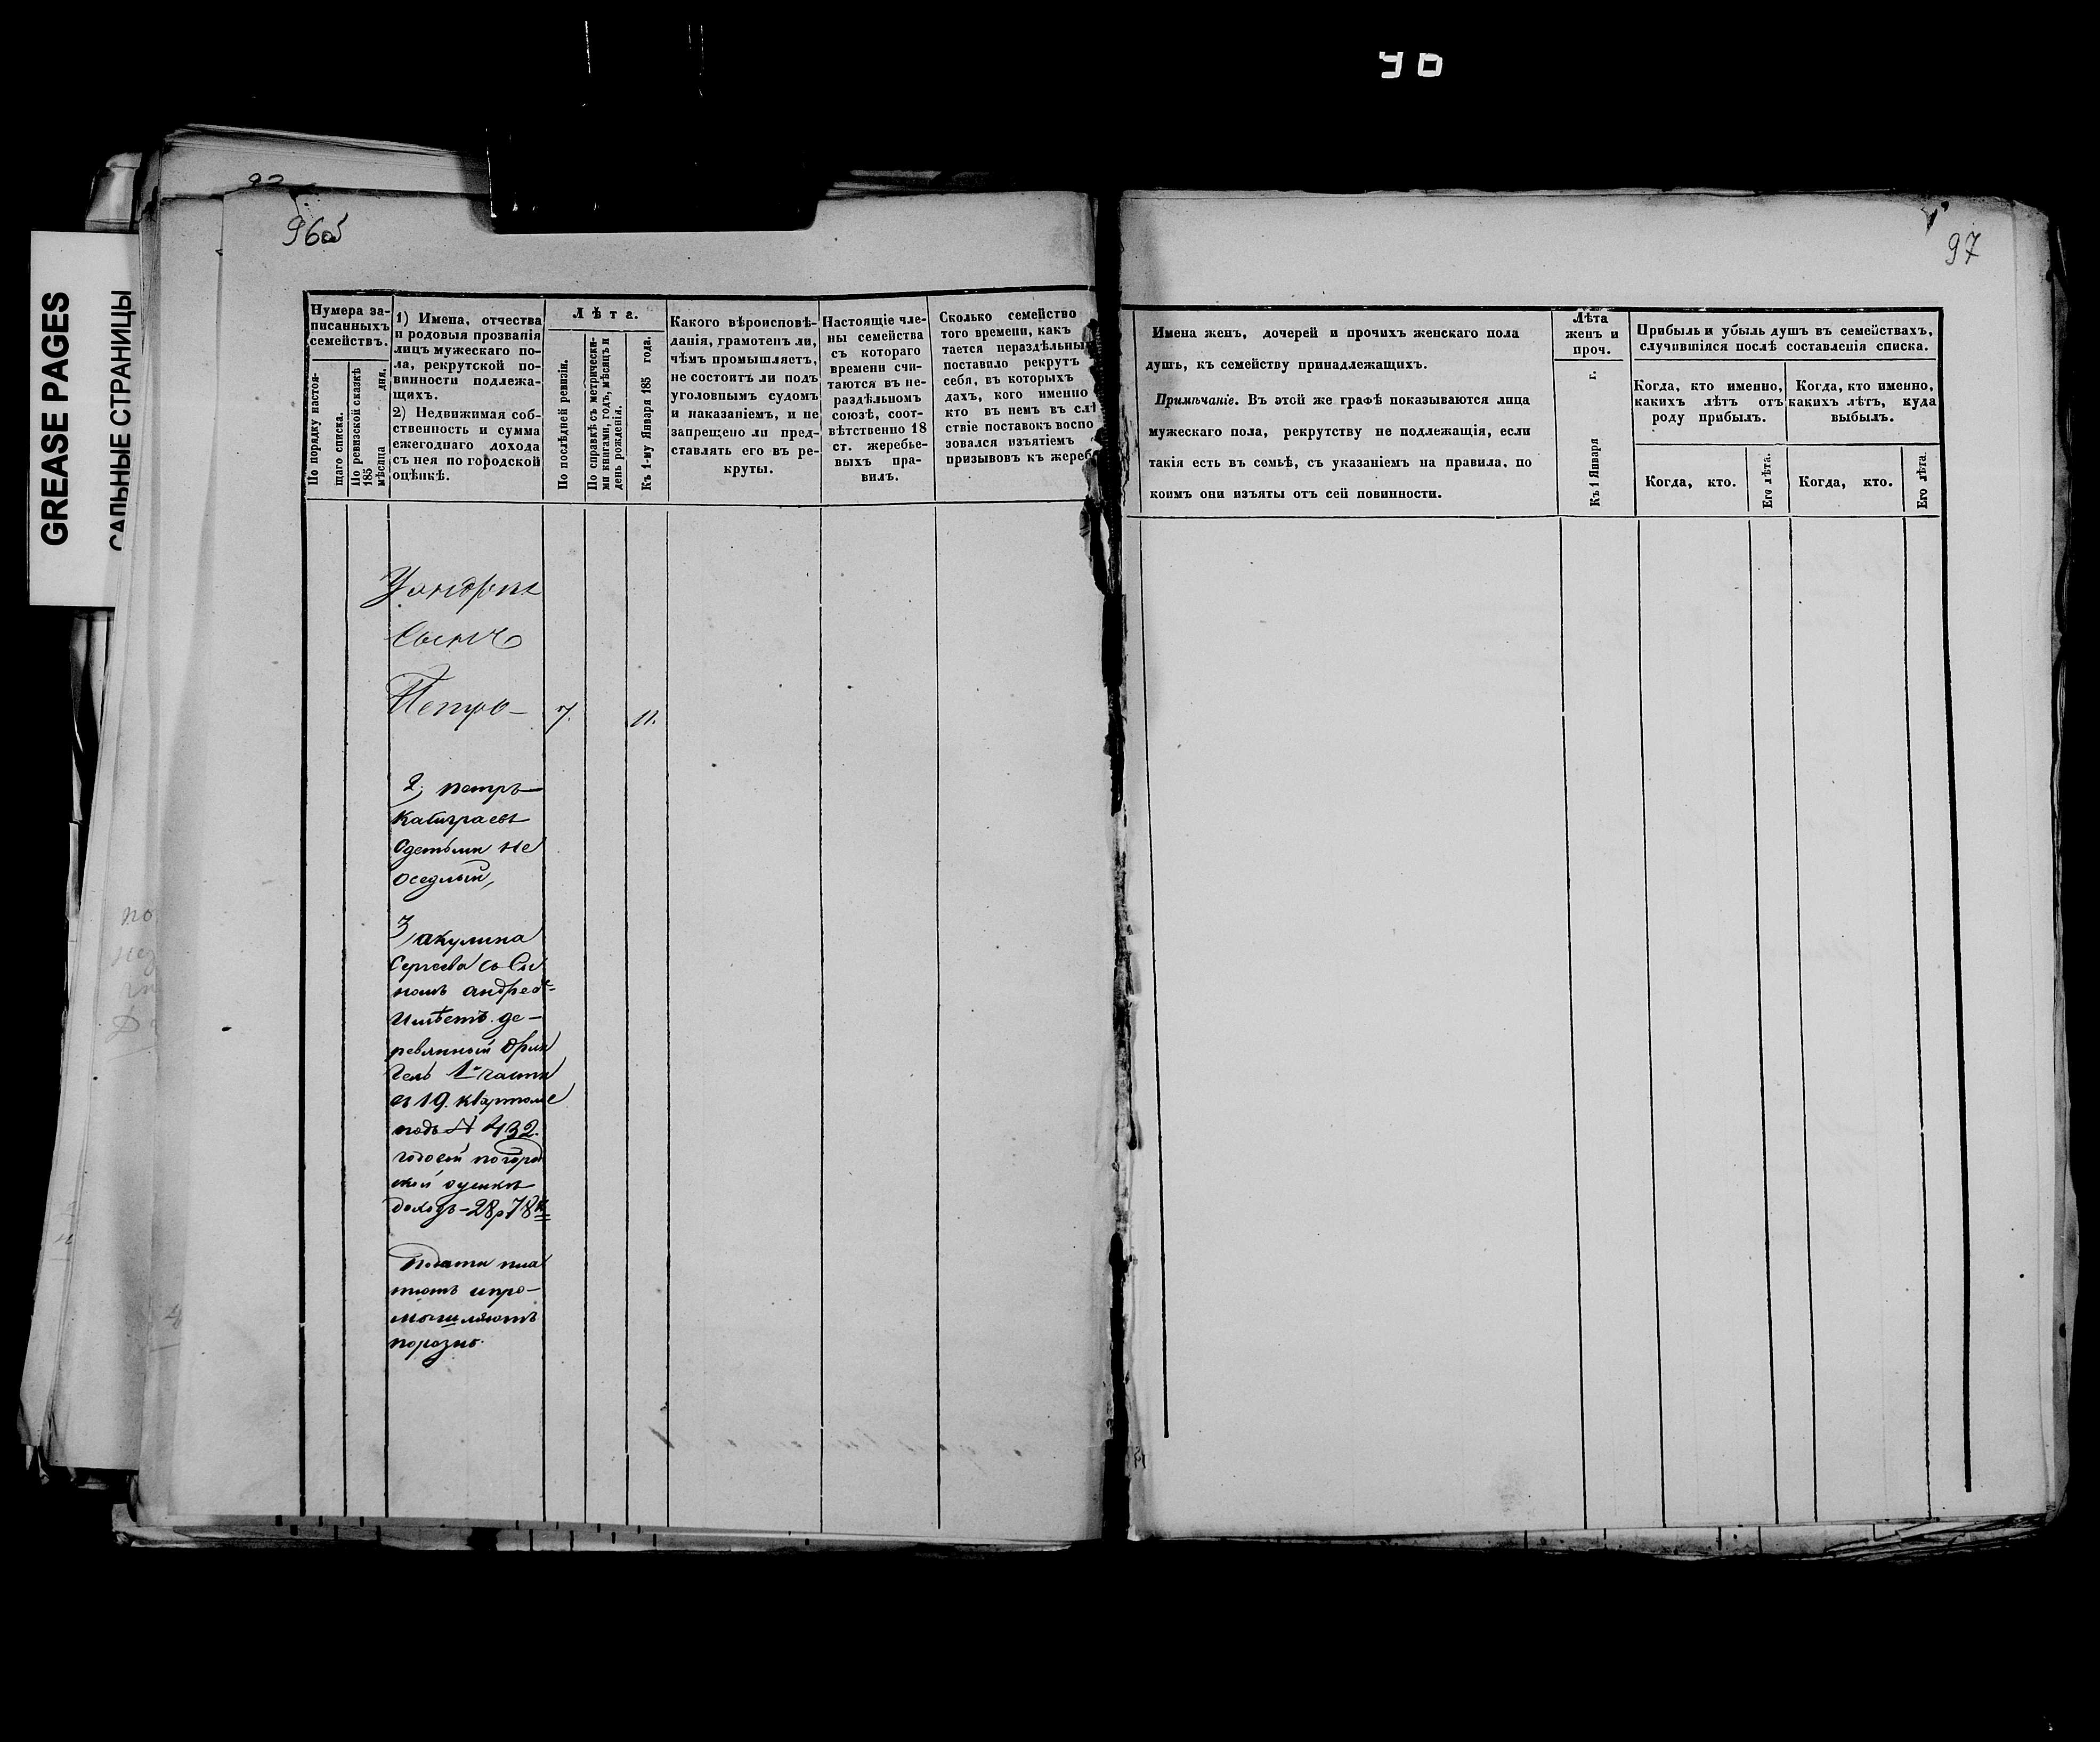 96об
97
GREASE PAGES
САЛЬНЫЕ СТРАНИЦЫ
Нумера за-
писанныхъ
семействъ.
По порядку настоя-
щаго списка.
По ревизской сказкѣ
185
мѣсяца дня.
1) Имена, отчества
и родовыя прозванія
лицъ мужескаго по-
ла, рекрутской по-
винности подлежа-
щихъ.
2) Недвижимая соб-
ственность и сумма
ежегоднаго дохода
съ нея по городской
оцѣнкѣ.
Лѣта.
По послѣдней ревизіи.
По справкѣ съ метрически-
ми книгами, годъ, мѣсяцъ и
день рожденія.
Къ 1-му Января 185 года.
Какого вѣроисповѣ-
данія, грамотенъ ли,
чѣмъ промышляетъ,
не состоитъ ли подъ
уголовнымъ судомъ
и наказаніемъ, и не
запрещено ли пред-
ставлять его въ ре-
круты.
Настоящіе чле-
ны семейства
съ котораго
времени счи-
таются въ не-
раздѣльномъ
союзѣ, соот-
вѣтственно 18
ст. жеребье-
выхъ пра-
вилъ.
Сколько семейство
того времени, какъ
тается нераздѣльны
поставило рекрутъ
себя, въ которыхъ
дахъ, кого именно
кто въ немъ въ слѣ
ствіе поставокъ воспо
зовался изъятіемъ
призывовъ къ жереб
Имена женъ, дочерей и прочихъ женскаго пола
душъ, къ семейству принадлежащихъ.
Примѣчаніе. Въ этой же графѣ показываются лица
мужескаго пола, рекрутству не подлежащія, если
такія есть въ семьѣ, съ указаніемъ на правила, по
коимъ они изъяты отъ сей повинности.
Лѣта
женъ и
проч.
Къ 1 Января г.
Прибыль и убыль душъ въ семействахъ,
случившіяся послѣ составленія списка.
Когда, кто именно,
какихъ лѣтъ отъ
роду прибылъ.
Когда, кто именно,
какихъ лѣтъ, куда
выбылъ.
Когда, кто.
Его лѣта.
Когда, кто.
Его лѣта.
Сынъ
Петръ 7. 11.
2, петръ
сдетьми не
оседлый,
3, акулина
Сергеева со Сы
номъ андрее
имѣетъ де-
ревянный
1й части
въ 19. квартале
подъ № 432
годовой погород
ской оценке
доходъ - 28р 78к
Подати пла
тятъ ипро-
мышляютъ
порознь.